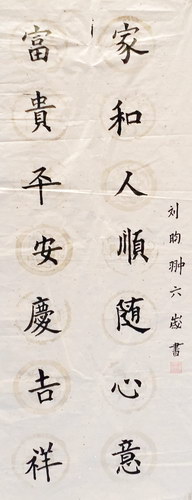 家和人順随心意
富貴平安慶吉祥
刘昀翀六歲書